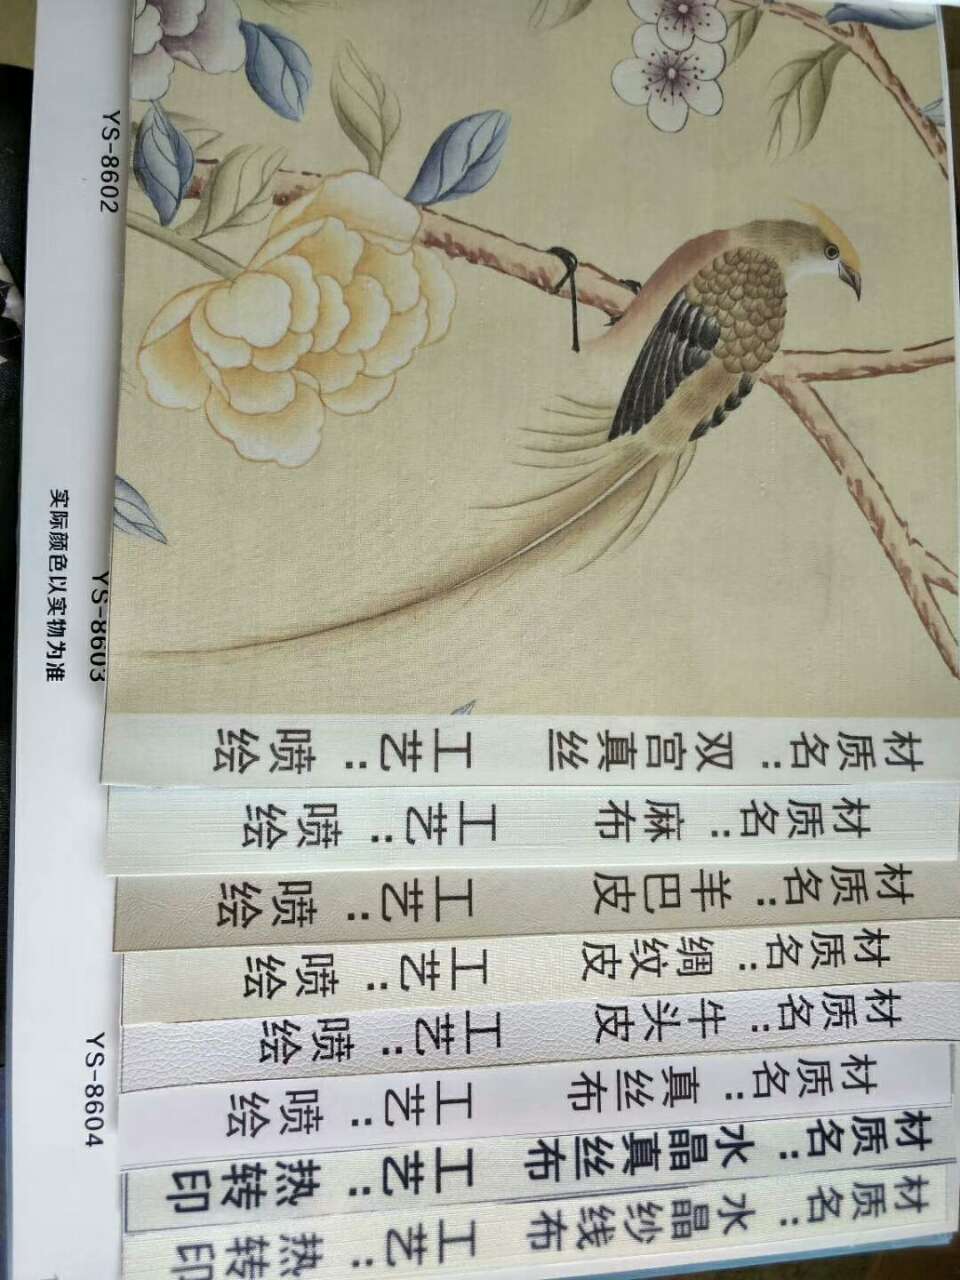 YS-8602
YS-8603
YS-8604
实际颜色以实物为准
材质名：双宫真丝 工艺：喷绘
材质名：麻布 工艺：喷绘
材质名：羊巴皮 工艺：喷绘
材质名：绸纹皮 工艺：喷绘
材质名：牛头皮 工艺：喷绘
材质名：真丝布 工艺：喷绘
材质名：水晶真丝布 工艺：热转印
材质名：水晶纱线布 工艺：热转印